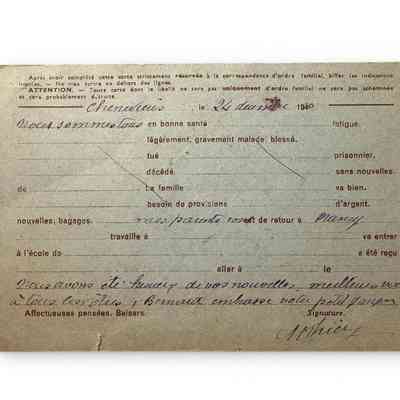 Après avoir complété cette carte strictement réservée à la correspondance d'ordre familial, biffer les indications
inutiles. - Ne rien écrire en dehors des lignes.
ATTENTION. - Toute carte dont le libellé ne sera pas uniquement d'ordre familial ne sera pas acheminée
et sera probablement détruite.
le 24 1940
Nous sommes tous en bonne santé fatigué.
légèrement, gravement malade, blessé.
tué prisonnier.
décédé sans nouvelles.
de La famille va bien.
besoin de provisions d'argent.
nouvelles, bagages. mes parents sont de retour à Nancy
travaille à va entrer
à l'école de a été reçu
aller à le
Nous avons été de vos nouvelles, meilleurs
à tous Bernard embrasse votre petit
Affectueuses pensées. Baisers. Signature.